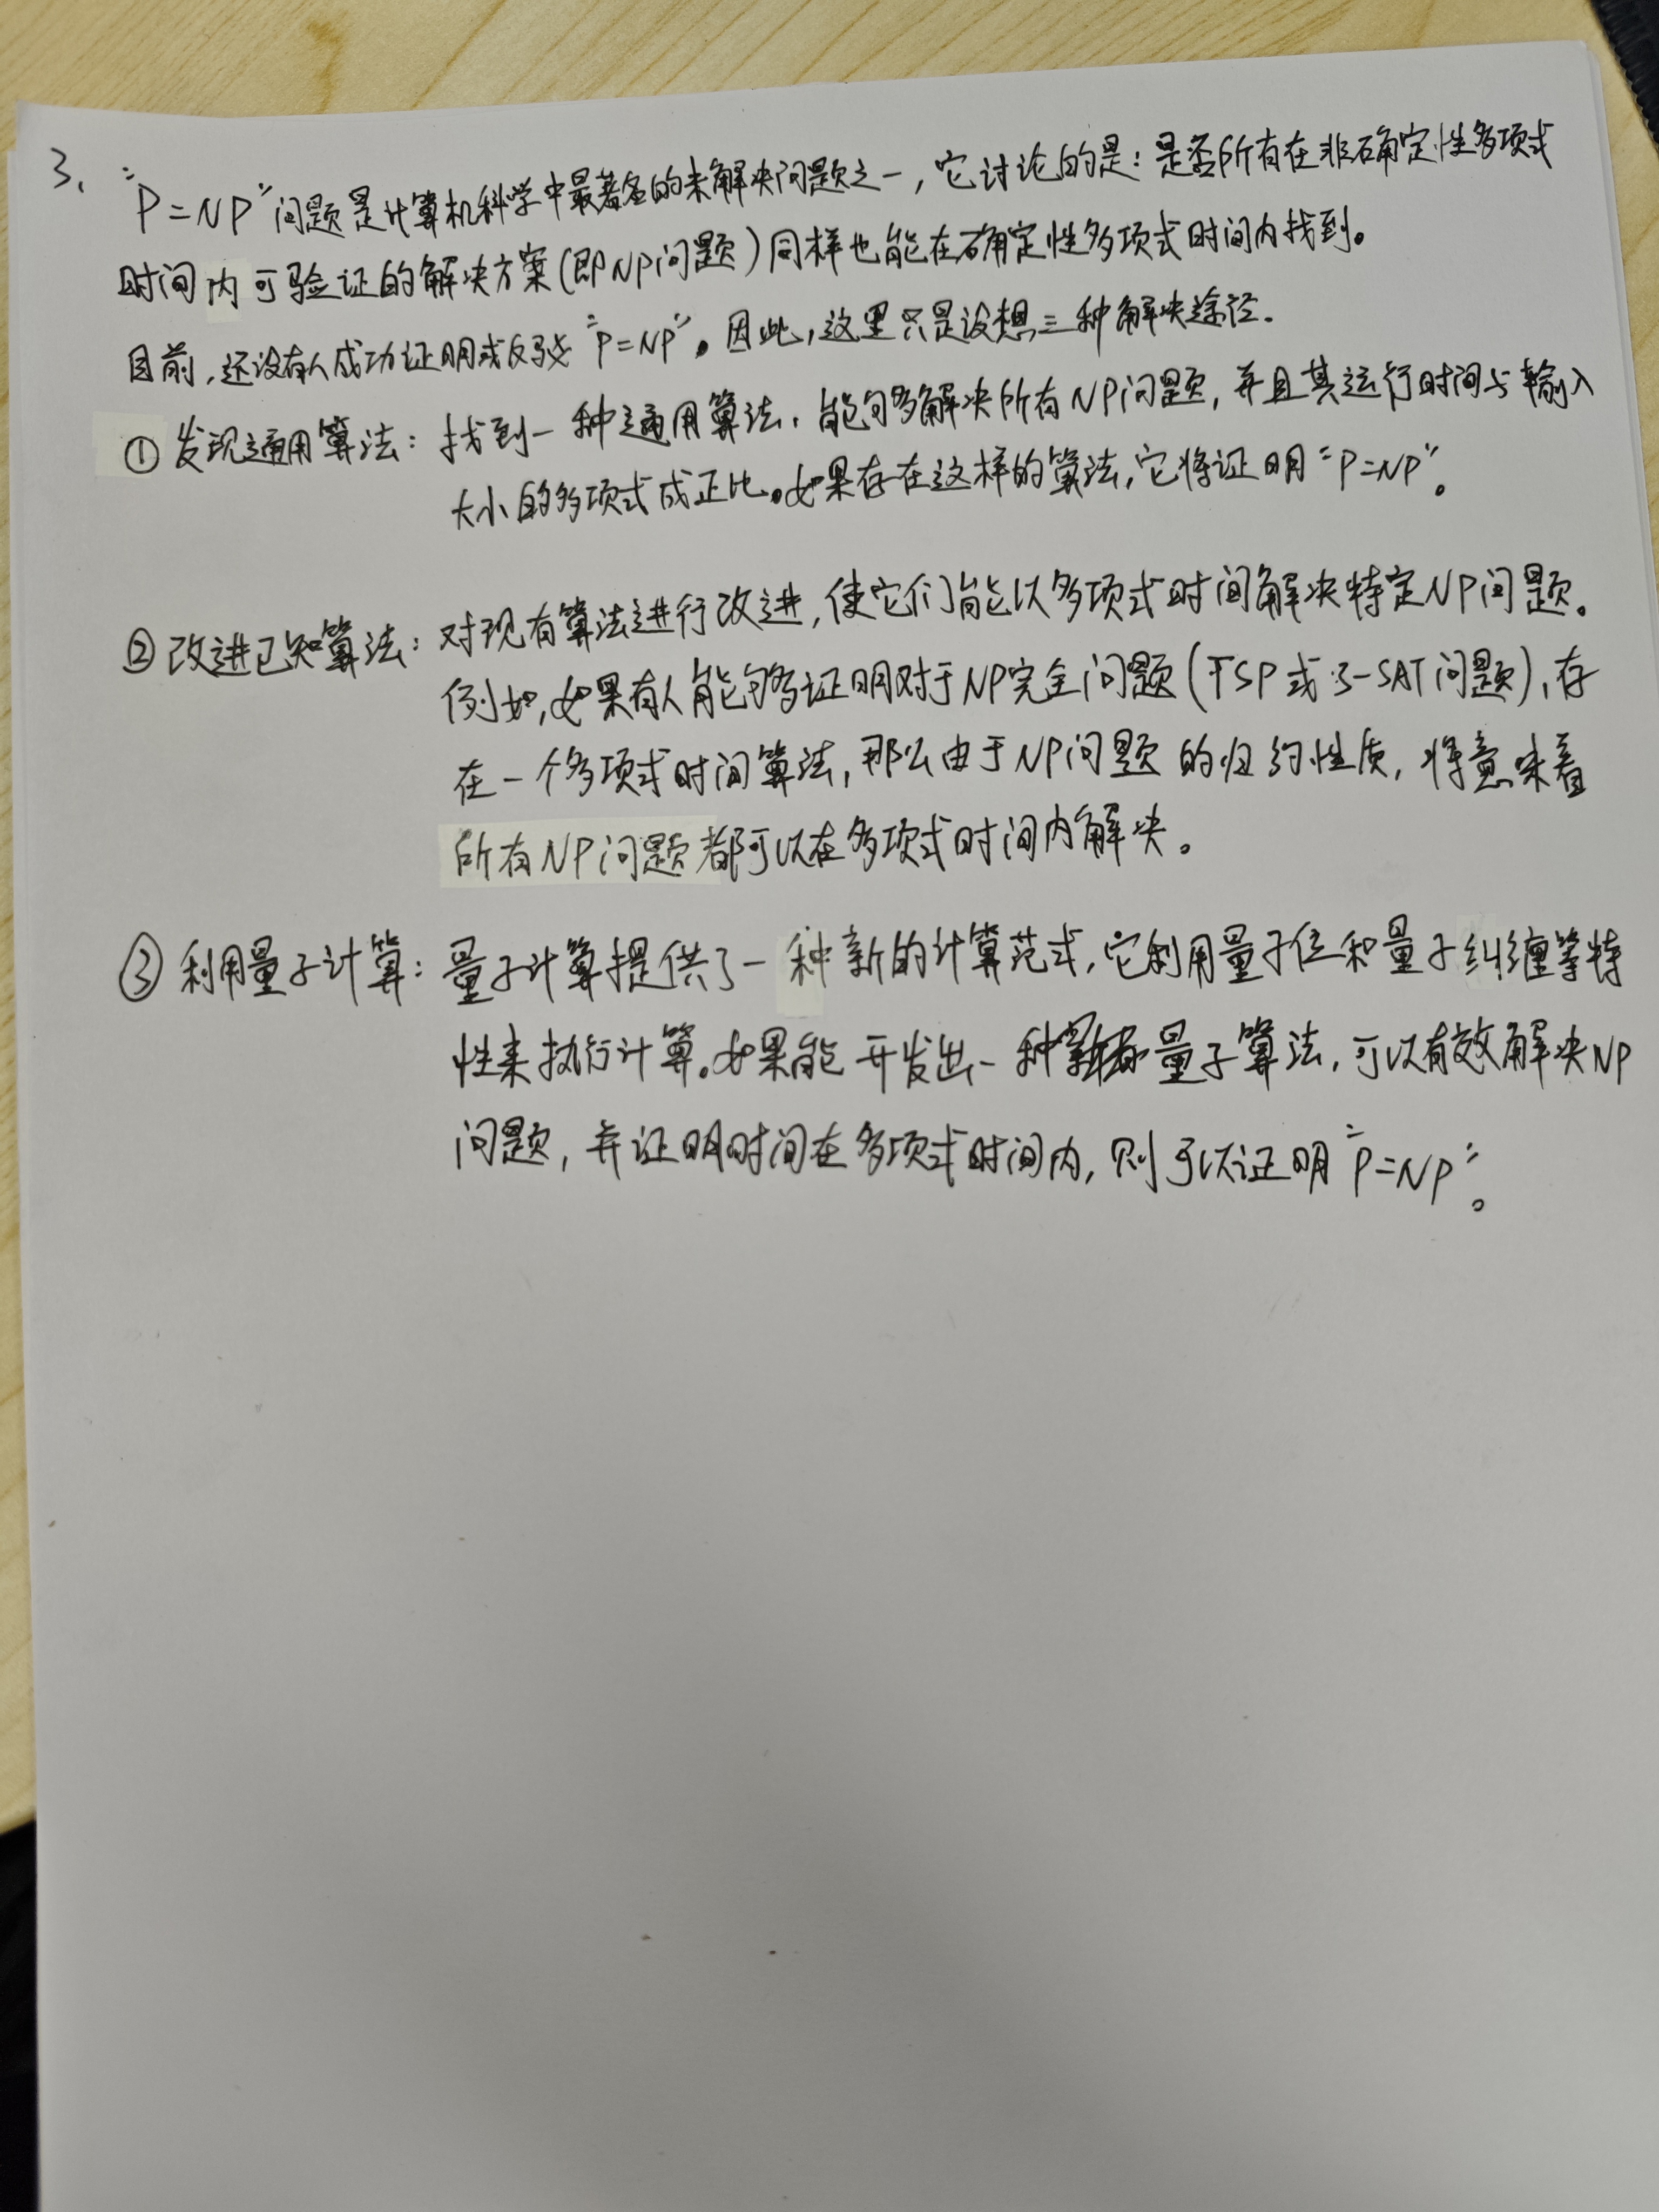 3、"P=NP"问题是计算机科学中最著名的未解决问题之一，它讨论的是：是否所有在非确定性多项式
时间内可验证的解决方案(即NP问题)同样也能在确定性多项式时间内找到。
目前，还没有人成功证明或反驳"P=NP"。因此，这里只是设想三种解决途径.
① 发现通用算法：找到一种通用算法，能够解决所有NP问题，并且其运行时间与输入
大小的多项式成正比。如果存在这样的算法，它将证明"P=NP"。
② 改进已知算法：对现有算法进行改进，使它们能以多项式时间解决特定NP问题。
例如，如果有人能够证明对于NP完全问题(TSP或3-SAT问题)，存
在一个多项式时间算法，那么由于NP问题的归约性质，将意味着
所有NP问题都可以在多项式时间内解决。
③ 利用量子计算：量子计算提供了一种新的计算范式，它利用量子位和量子纠缠等特
性来执行计算。如果能开发出一种量子算法，可以有效解决NP
问题，并证明时间在多项式时间内，则可以证明"P=NP"。